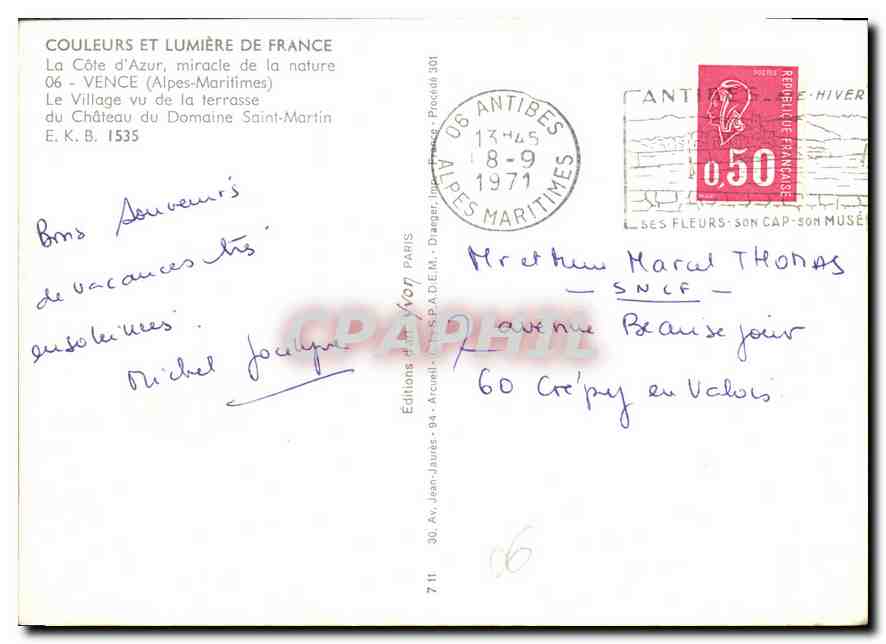 COULEURS ET LUMIÈRE DE FRANCE
La Côte d'Azur, miracle de la nature
06 - VENCE (Alpes-Maritimes)
Le Village vu de la terrasse
du Château du Domaine Saint-Martin
E. K. B. 1535
Bons Souvenirs
de vacances très
ensoleillées.
Michel Jocelyne
Editions d'art Yvon PARIS
7 11 30, Av. Jean-Jaurès - 94 - Arcueil - S.P.A.D.E.M. - Draeger, Imp. France - Procédé 301
06 ANTIBES
13H45
8-9
1971
ALPES MARITIMES
ANTIBES E-HIVER
SES FLEURS-SON CAP-SON MUSÉ
POSTES
RÉPUBLIQUE FRANÇAISE
0,50
Mr et Mme Marcel THOMAS
- SNCF -
7 avenue Beausejour
60 Crépy en Valois
06
CPAPHIL